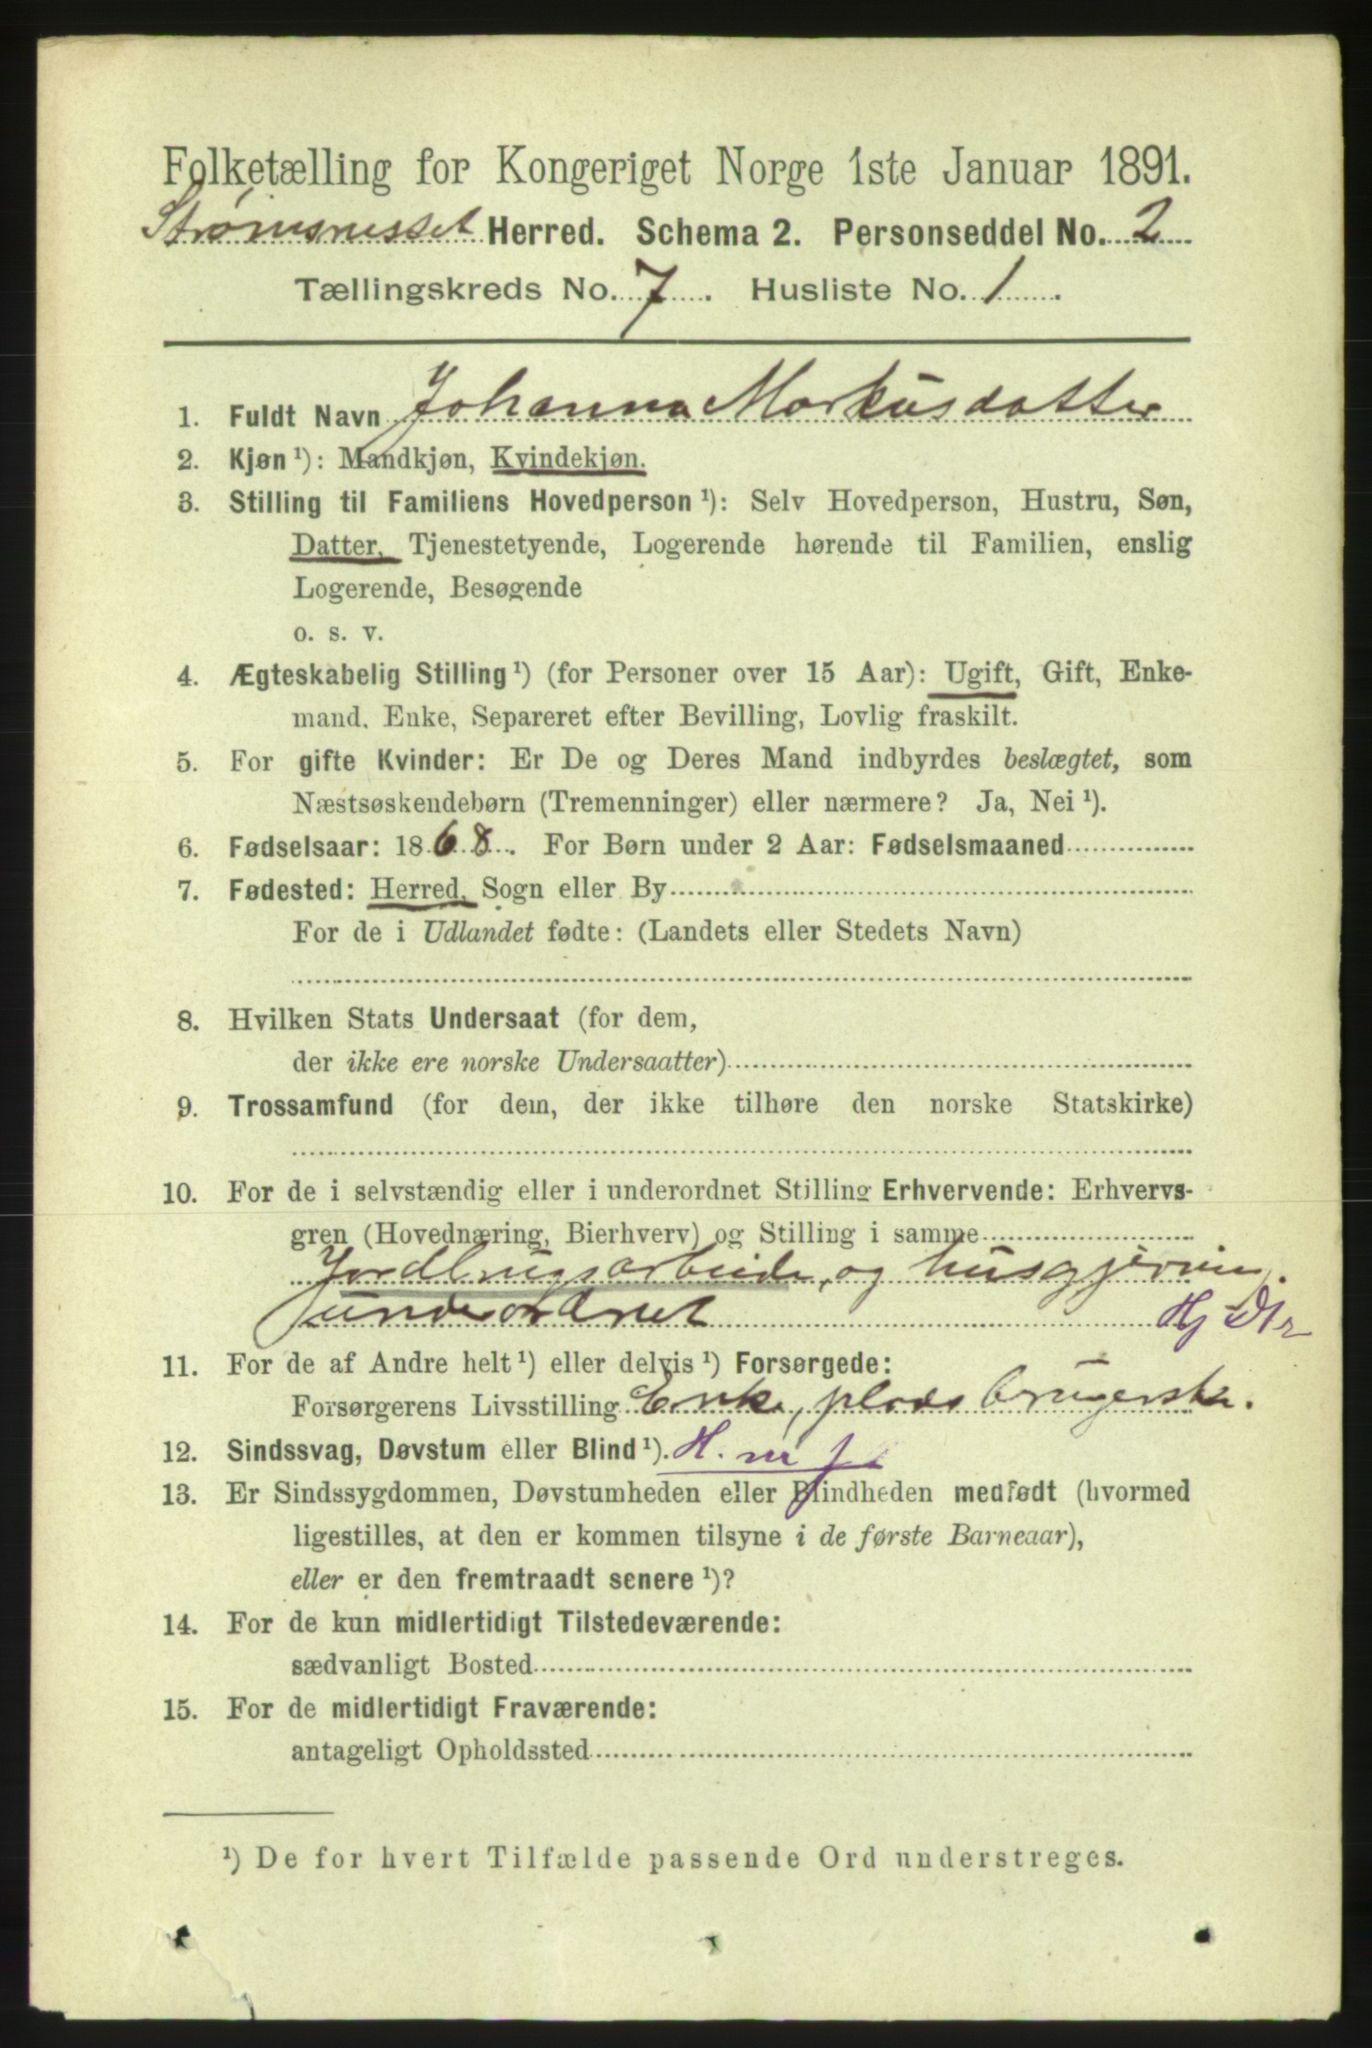 Folketælling for Kongeriget Norge 1ste Januar 1891.
Strømsnesset Herred. Schema 2. Personseddel No. 2
Tællingskreds No. 7. Husliste No. 1.
1. Fuldt Navn Johanna Markusdatter
2. Kjøn¹): Mandkjøn, Kvindekjøn.
3. Stilling til Familiens Hovedperson¹): Selv Hovedperson, Hustru, Søn,
Datter, Tjenestetyende, Logerende hørende til Familien, enslig
Logerende, Besøgende
o. s. v.
4. Ægteskabelig Stilling¹) (for Personer over 15 Aar): Ugift, Gift, Enke-
mand, Enke, Separeret efter Bevilling, Lovlig fraskilt.
5. For gifte Kvinder: Er De og Deres Mand indbyrdes beslægtet, som
Næstsøskendebørn (Tremenninger) eller nærmere? Ja, Nei¹).
6. Fødselsaar: 1868. For Børn under 2 Aar: Fødselsmaaned
7. Fødested: Herred, Sogn eller By
For de i Udlandet fødte: (Landets eller Stedets Navn)
8. Hvilken Stats Undersaat (for dem,
der ikke ere norske Undersaatter)
9. Trossamfund (for dem, der ikke tilhøre den norske Statskirke)
10. For de i selvstændig eller i underordnet Stilling Erhvervende: Erhvervs-
gren (Hovednæring, Bierhverv) og Stilling i samme
Jordbrugsarbeide, og husgjerning.
underordnet Hj Dtr
11. For de af Andre helt¹) eller delvis¹) Forsørgede:
Forsørgerens Livsstilling Enke, pladsbrugerske.
12. Sindssvag, Døvstum eller Blind¹). H.
13. Er Sindssygdommen, Døvstumheden eller Blindheden medfødt (hvormed
ligestilles, at den er kommen tilsyne i de første Barneaar),
eller er den fremtraadt senere¹)?
14. For de kun midlertidigt Tilstedeværende:
sædvanligt Bosted
15. For de midlertidigt Fraværende:
antageligt Opholdssted
¹) De for hvert Tilfælde passende Ord understreges.